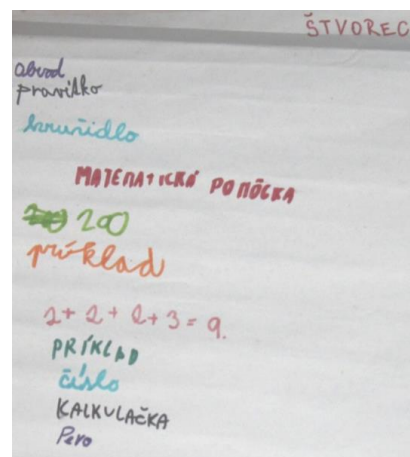 ŠTVOREC
obvod
pravítko
kružidlo
MATEMATICKÁ POMÔCKA
200
príklad
2+2+2+3=9.
PRÍKLAD
číslo
KALKULAČKA
Pero